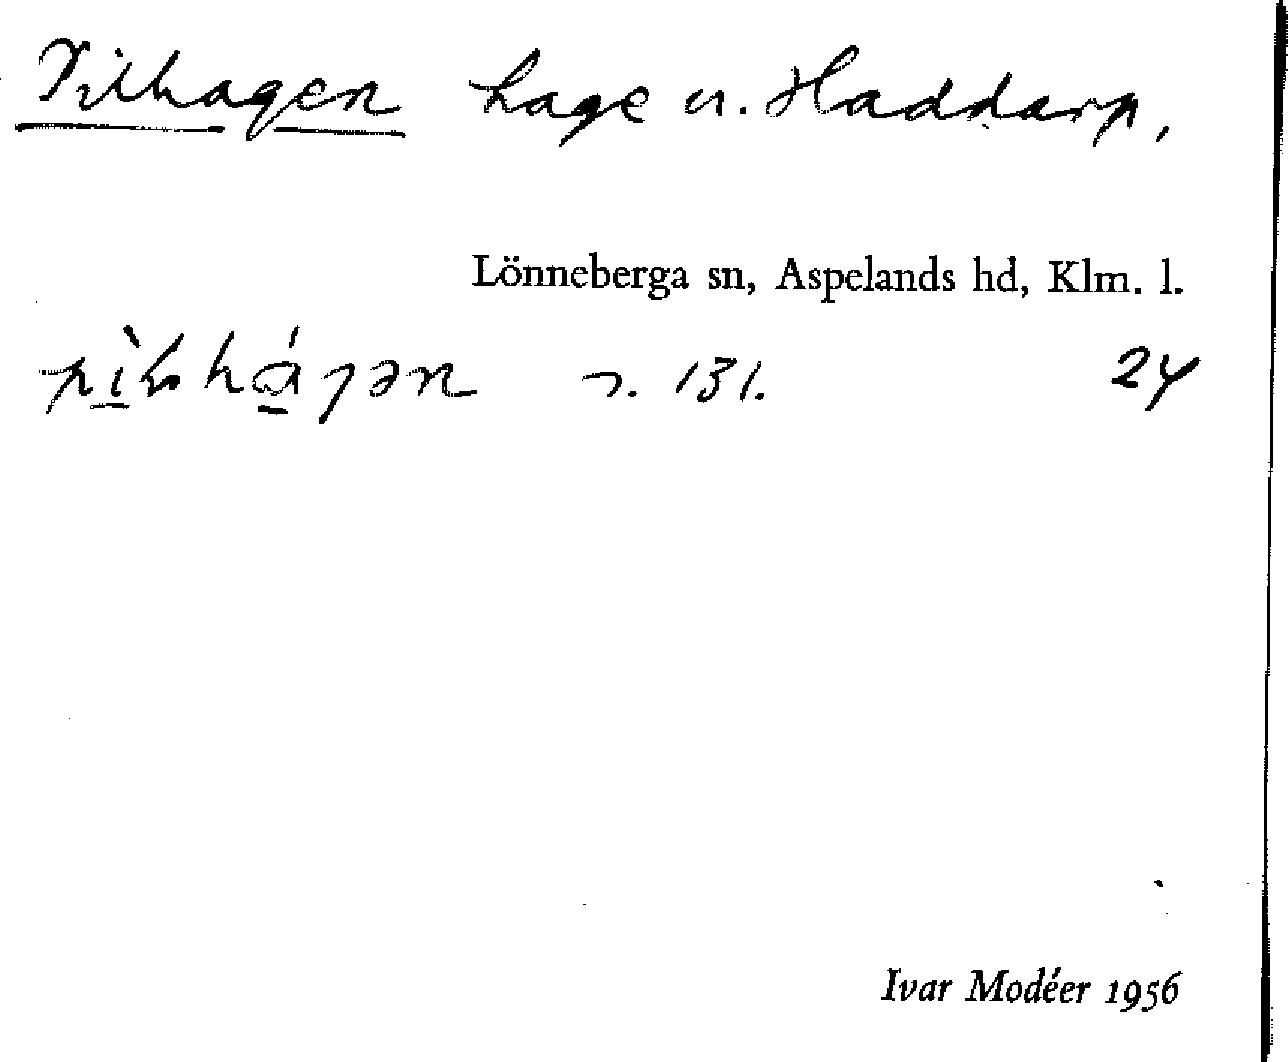 Pilhagen hage u. Haddarp,
Lönneberga sn, Aspelands hd, Klm. l.
131. 24
Ivar Modéer 1956